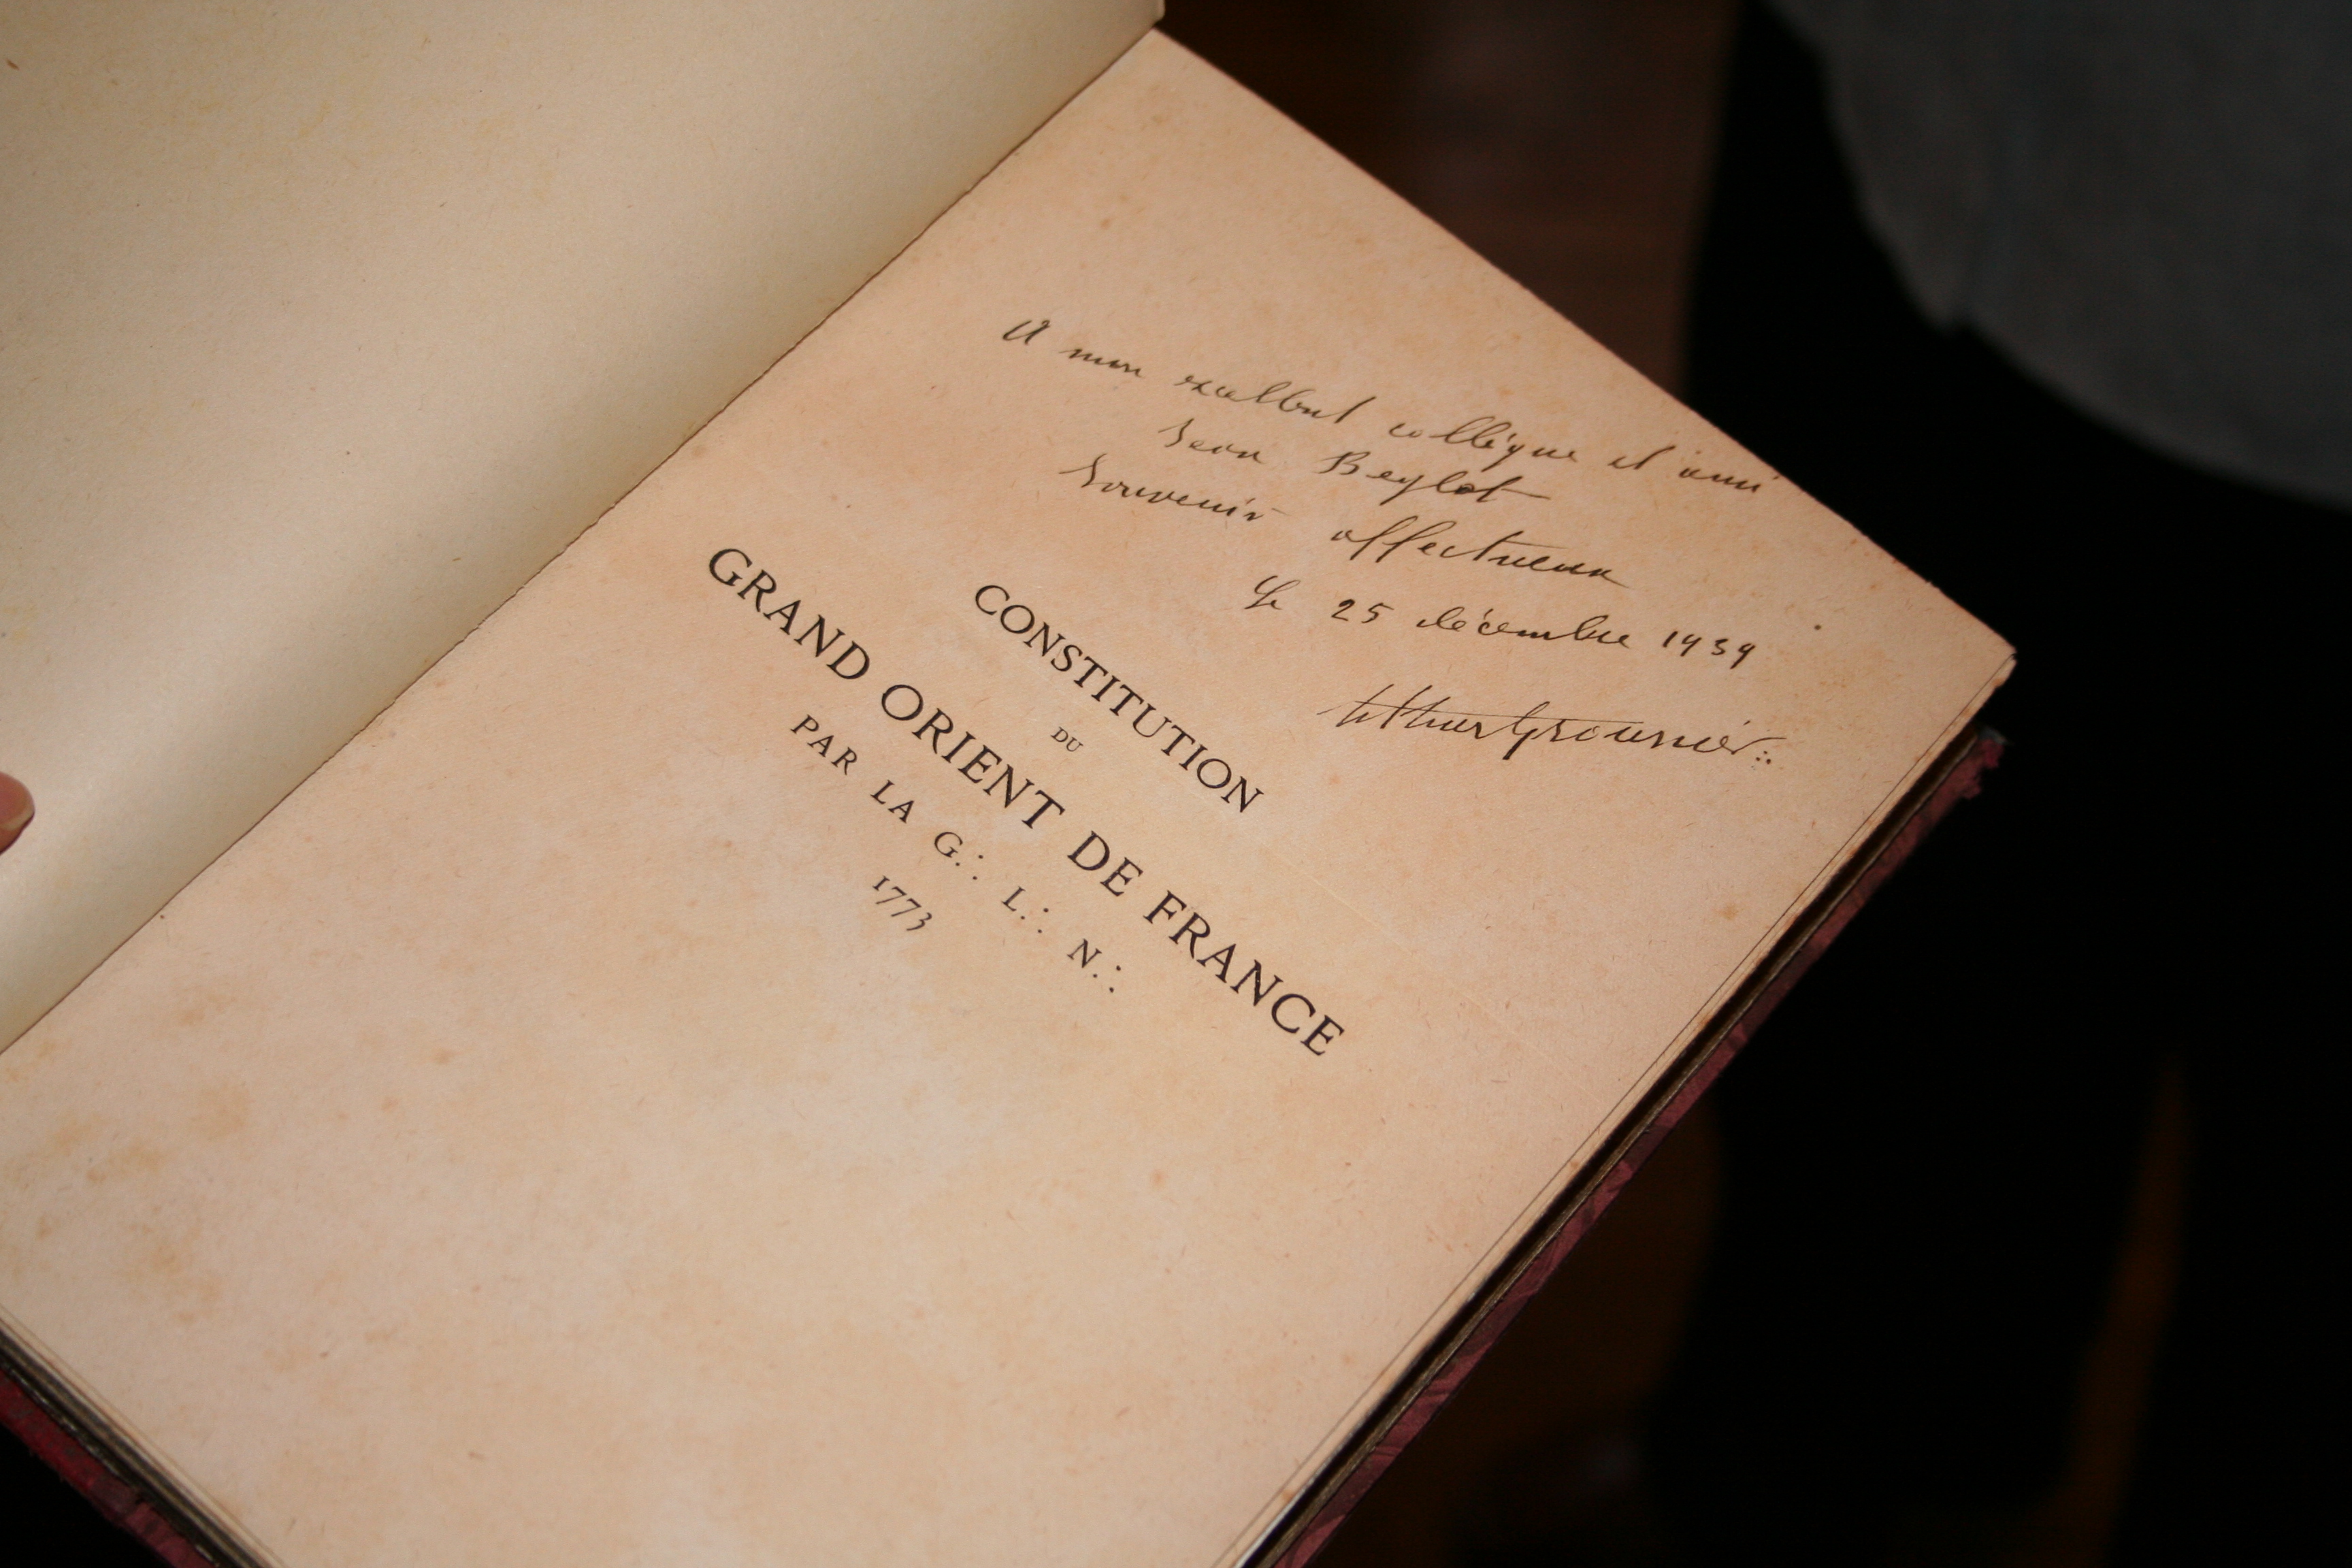 A mon excellent collègue et ami
Jean Beylot
Souvenir affectueux
Le 25 décembre 1939
Arthur Groussier∴
CONSTITUTION
DU
GRAND ORIENT DE FRANCE
PAR LA G∴ L∴ N∴
1773